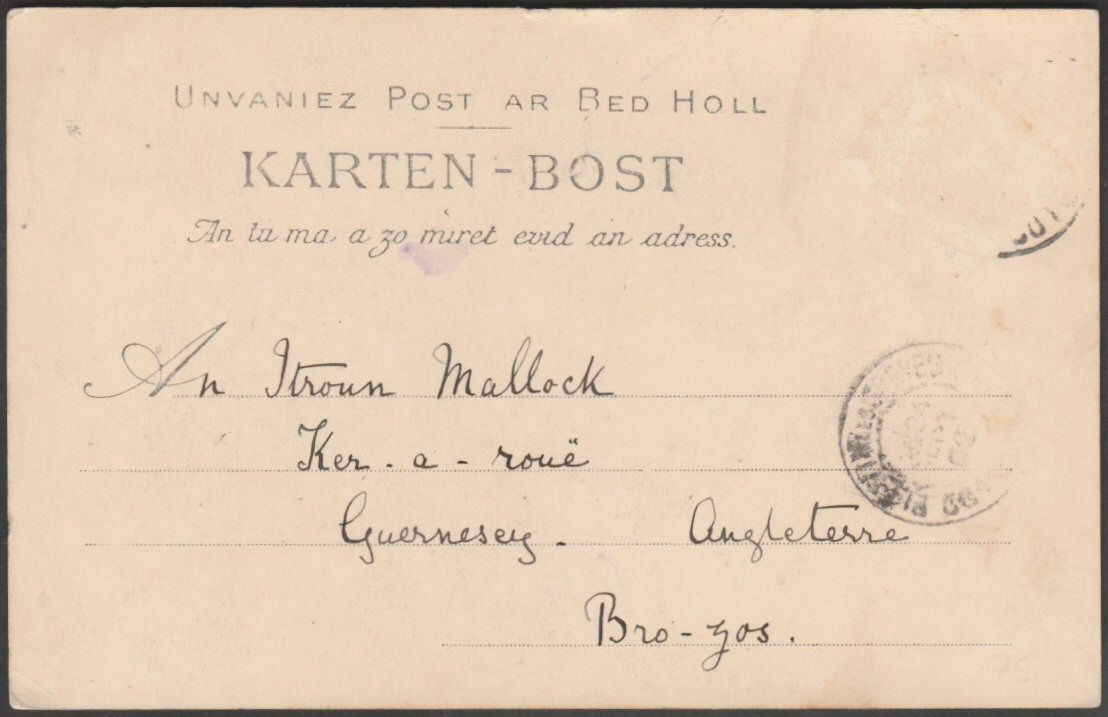 UNVANIEZ POST AR BED HOLL
KARTEN-BOST
An tu ma a zo miret evid an adress.
An Itroun Mallock
Ker-a-rouë
Guernesey. Angleterre
Bro-zos.